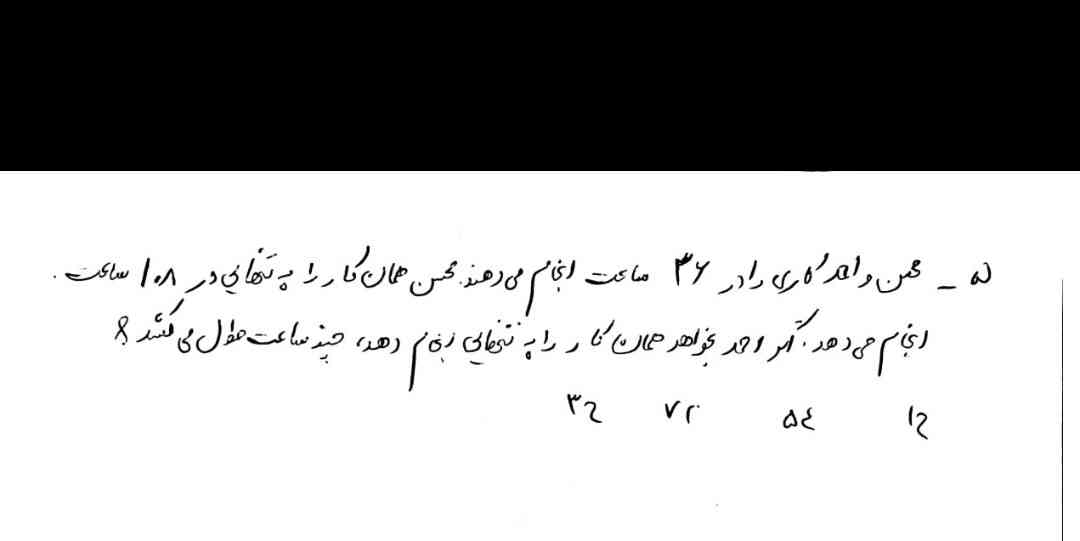 ۵ - محسن و احمد کاری را در ۳۶ ساعت انجام می دهند. محسن همان کار را به تنهایی در ۱۰۸ ساعت
انجام می دهد. اگر احمد بخواهد همان کار را به تنهایی انجام دهد، چند ساعت طول می کشد؟